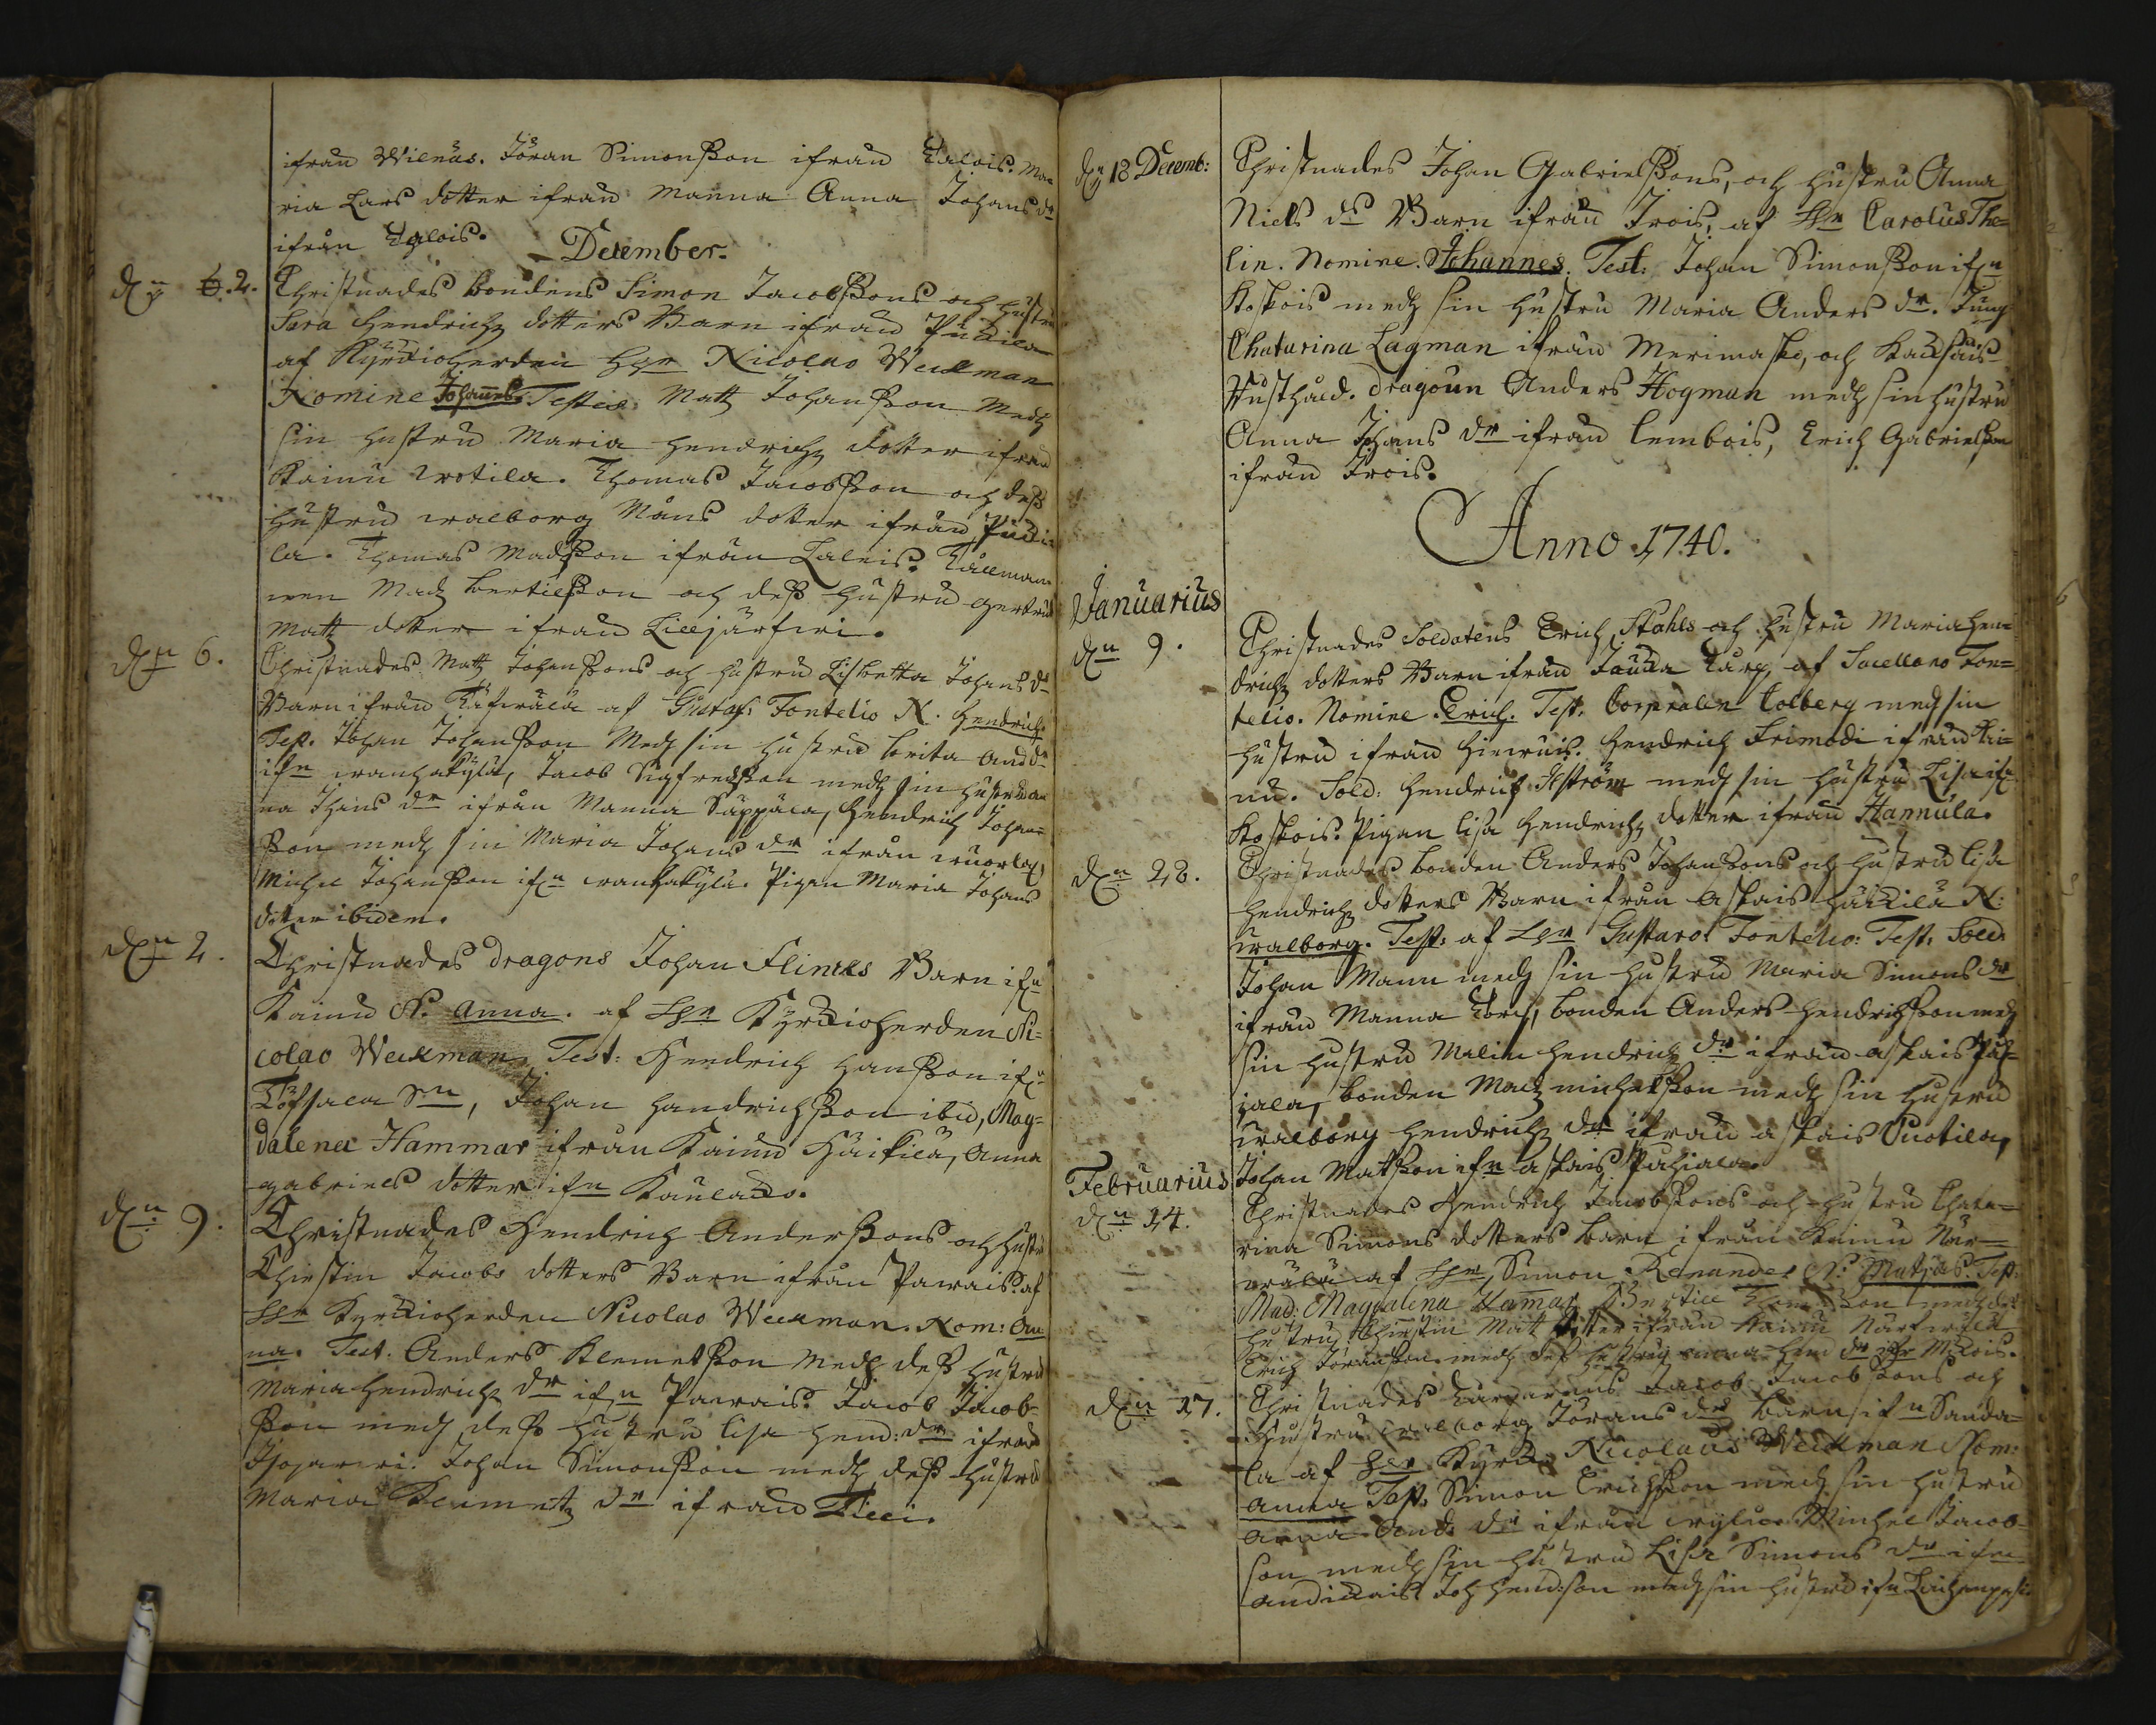 ifrån Wilnäs. Jöran Simonsson ifrån Talois. Ma=
ria Lars dotter ifrån Manna Anna Johans dr
ifrån Talois.
December.
dn 2. Christnades bondens Simon Jacobssons och hustru
Sara Hendrichz dotters Barn ifrån
af Kyrckioherden Hr Nicolao Weckman
Nomine Johannes. Testes. Matz Johansson medh
sin hustru Maria Hendrichz dotter ifrån
Kaimu. Thomas Jacobsson och dess
hustru walborg Måns dotter ifrån
la. Thomas Madsson ifrån Taleis.
Madz Bertilsson och dess hustru gertrud
Mattz dotter ifrån Lilljärfwi.
dn 6. Christnades Mattz Johanssons och hustru Lisbetta Johans dr
Barn ifrån af Gustaf: Fontelio N. Hendrich.
Test. Johan Johansson Medh sin hustru brita And dr
ifn, Jacob Sigfredsson medh sin hustru An
na Johans dr ifrån Manna Säppälä, Hendrich Johan=
sson medh sin Maria Johans dr ifrån
Michel Johansson ifn. Pigan Maria Johans
dotter ibidem.
dn 2. Christnades Dragons Johan Flincks Barn ifn
Kaimu N. Anna. af Hr Kyrckioherden Ni=
colao Weckman. Test: Hendrich Hansson ifn
Johan Handrichsson ibid, Mag=
dalena Hammar ifrån Kaimu Häikilä, Anna
gabriels dotter ifn
dn 9. Christnades Hendrich Anderssons och hustru
Christin Jacobs dotters Barn ifrån Pawais. af
Hr Kyrckioherden Nicolao Weckman. Nom: An
na. Test. Anders Klemetsson medh dess hustru
Maria Hendrichz dr ifn Pawais. Jacob Jacob=
sson medh dess hustru Lisa Hend: dr ifrån
Johan Simonsson medh dess hustru
Maria Klemetz dr ifrån
dn 18 Decemb: Christnades Johan Gabrielssons, och hustru Anna
Niels dr Barn ifrån Irois, af Hr Carolus The=
lin. Nomine. Johannes. Test: Johan Simonsson ifn
Koskois medh sin hustru Maria Anders dr. Jung
Chatarina Lagman ifrån Merimasko, och
Rusthåld. dragoun Anders Hogman medh sin hustru
Anna Johans dr ifrån Lembois, Erich Gabrielsson
ifrån Irois.
Anno 1740.
Januarius
dn 9. Christnades Soldatens Erich Ståhls och hustru Maria Hen=
drichz dotters Barn ifrån, af Sacellano Fon=
telio. Nomine. Erich. Test. Corpralen Colberg medh sin
hustru ifrån. Hendrich Frimodi ifrån Kai=
mu. Sold: Hendrich medh sin hustru Lisa ifn
Koskois. Pigan Lisa Hendrichz dotter ifrån Hannula.
dn 28. Christnades bonden Anders Johanssons och hustru Lisa
Hendrichz dotters Barn ifrån Askais N:
walborg. Test: af Hr Gustavo: Fontelio: Test. Sold:
Johan Mann medh sin hustru Maria Simons dr
ifrån Manna, bonden Anders Hendrichsson medh
sin hustru Malin Hendrichz dr ifrån askais Pah=
jala, bonden Madz Michelsson medh sin hustru
walborg Hendrichz dr ifrån askais
Johan Matsson ifn askais Pahiala.
Februarius
dn 14. Christnades Hendrich Jacobssons och hustru Chata=
rina Simons dotters barn ifrån Kaimu När=
wälä af Hr, Simon Renander N: Matias. Test.
Mad: Magdalena Hamar, medh dess
hustru Christin Mattz dotter ifrån Kaimu
Erich Jöransson medh dess hustru Anna Hend dr
dn 17. Christnades Jacob Jacobssons och
Hustru walborg Jörans drs barn ifn Sanda=
la af Her Kyrck: Nicolaus Weckman Nom:
Anna Test. Simon Erichsson medh sin hustru
Anna And: dr ifrån. Michel Jacob=
son medh sin hustru Lisa Simons dr ifrån
Joh Hend:son medh sin hustru ifn